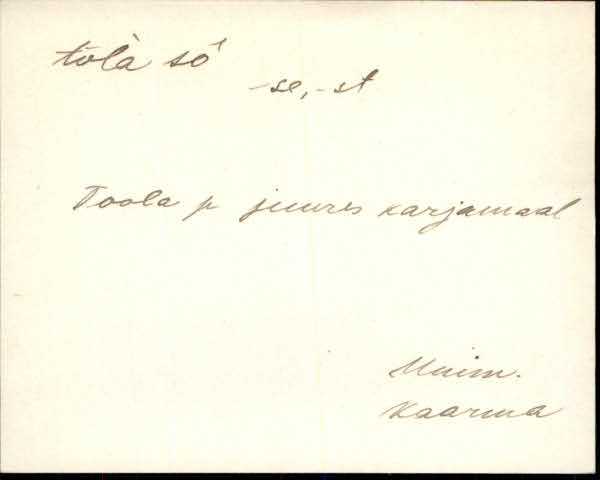 tòlà sō
-se, -st
Toola p juures karjamaal
Muim.
Kaarma